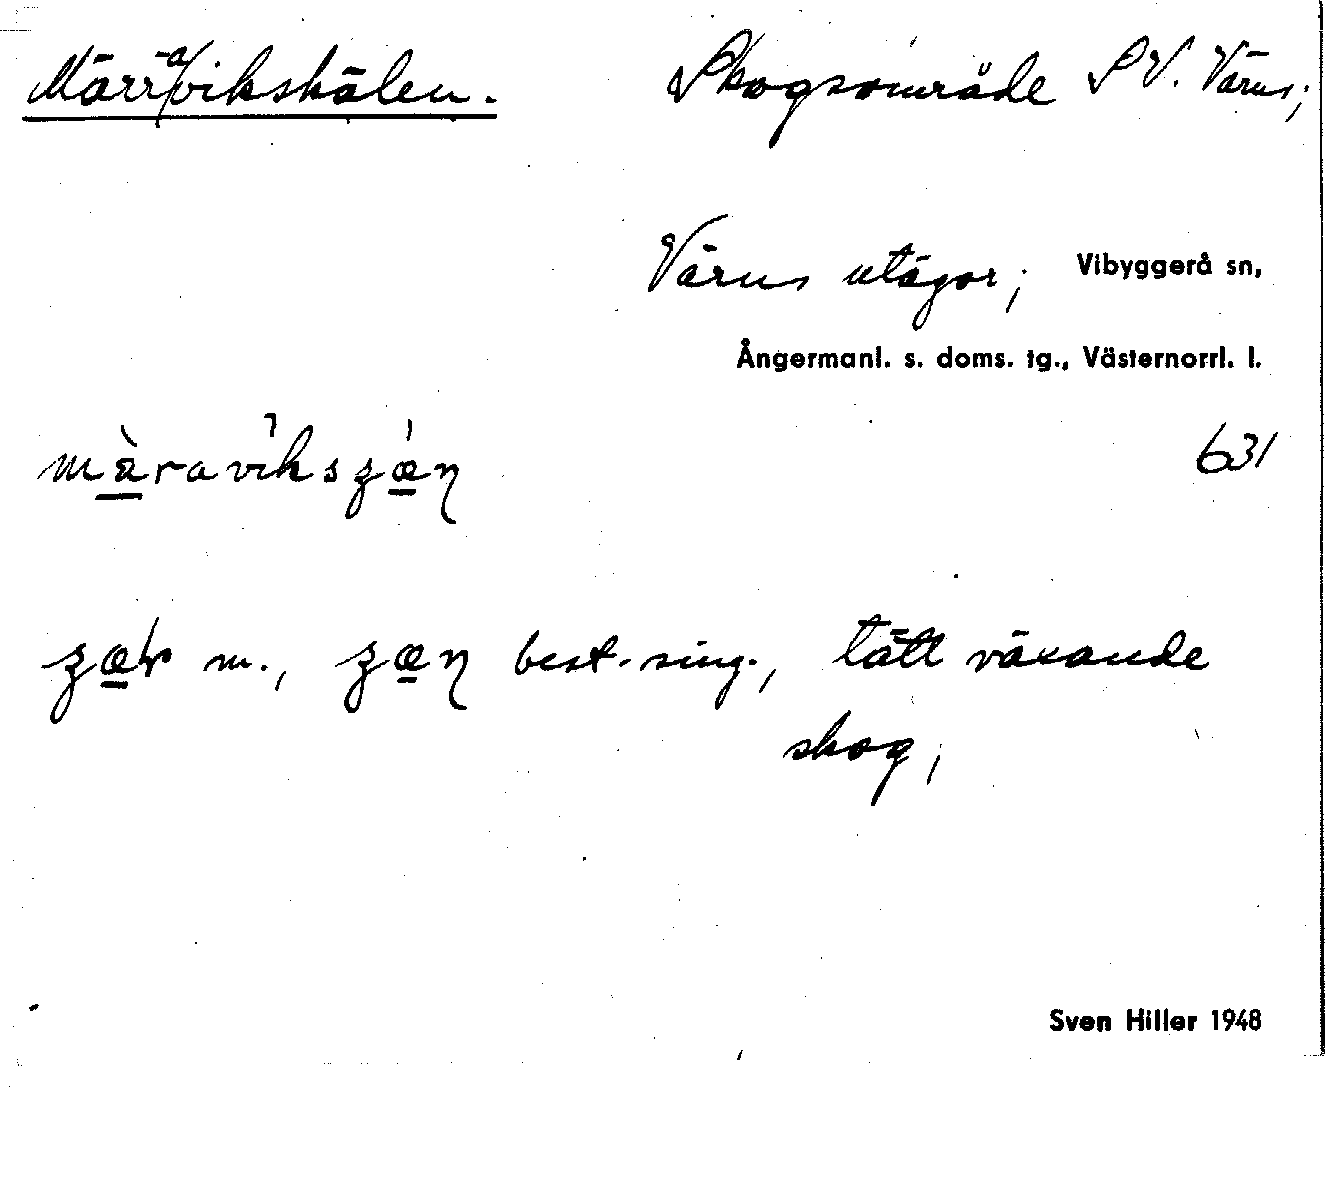 Märravikskälen. Skogsområde SV. Värns;
Värns utägor; Vibyggerå sn,
Ångermanl. s. doms. tg., Västernorrl. l.
631
m., best. sing., tätt växande
skog;
Sven Hiller 1948